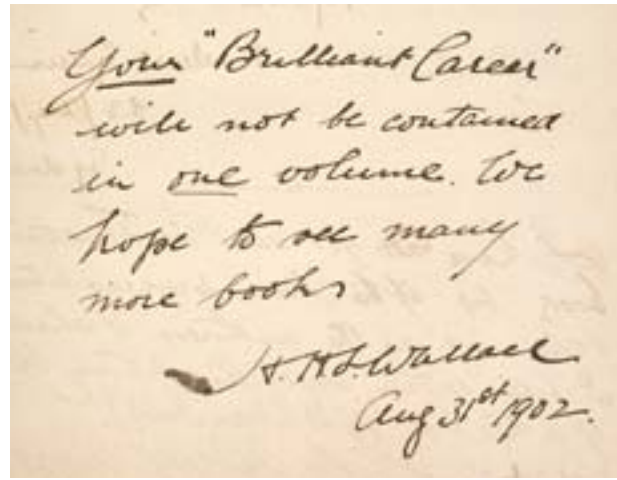 Your "Brilliant Career"
will not be contained
in one volume. We
hope to see many
more books
Wallace
Aug 31st 1902.